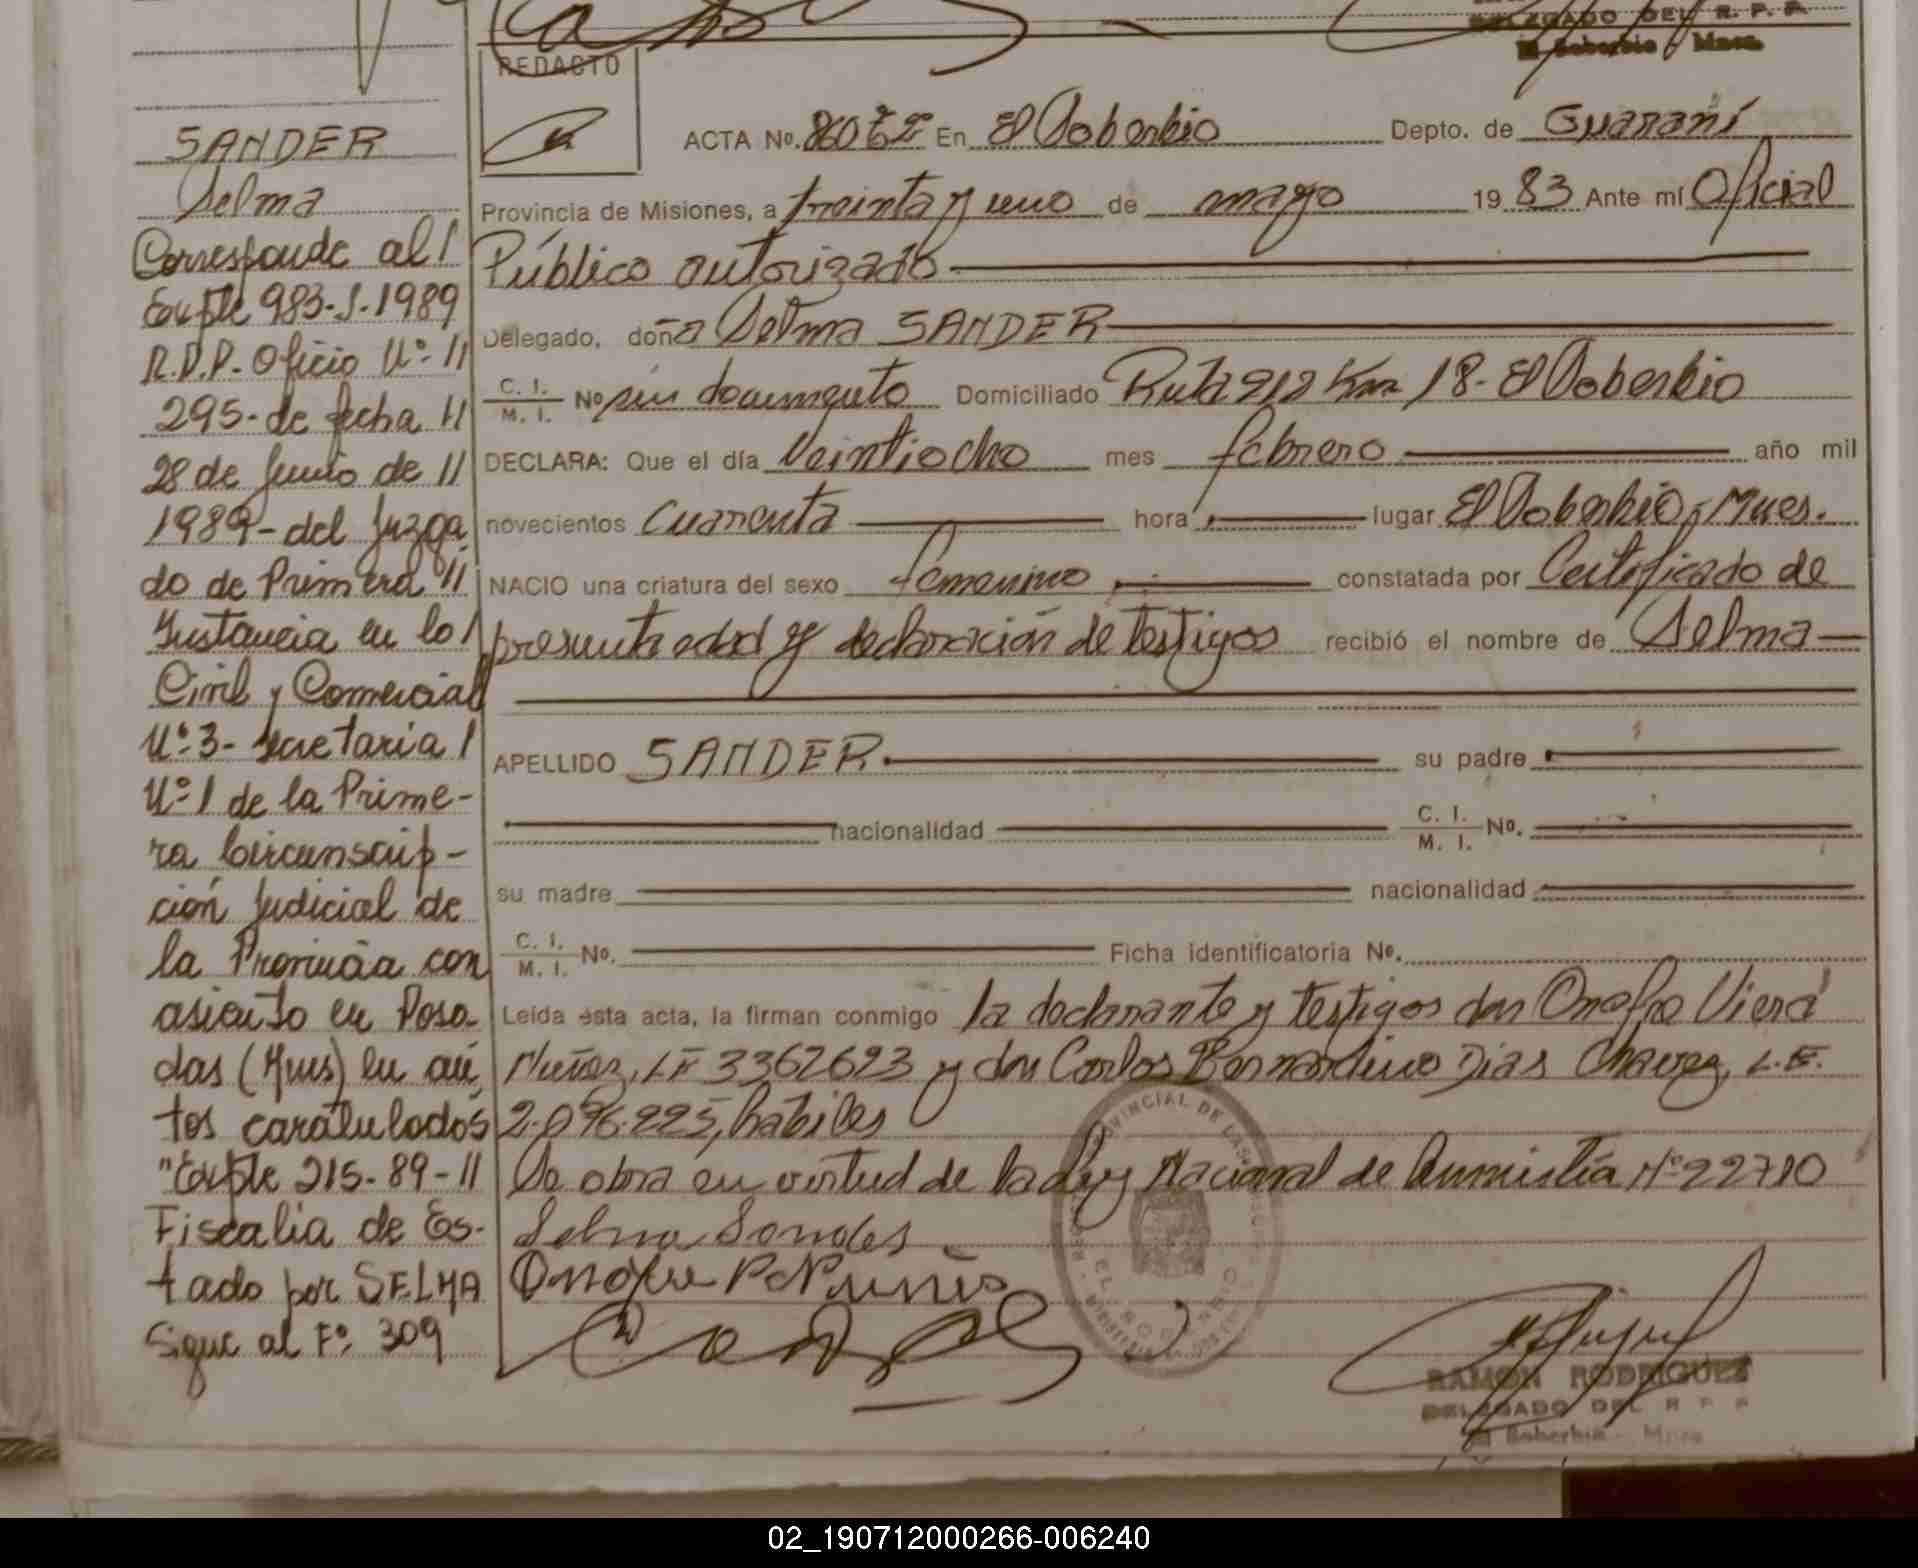 DELEGADO DEL R. P. P.
El Soberbio - Mnes.
REDACTO
SANDER
Selma
Corresponde al/
Expte 983-S-1989
R.P.P. Oficio Nº 11
295- de fecha //
28 de Junio de //
1989- del Juzga
do de Primera //
Instancia en lo/
Civil y Comercial
Nº 3- Secretaria/
Nº 1 de la Prime-
ra Circunscrip-
ción Judicial de
la Provincia con
asiento en Posa-
das (Mnes) en au
tos caratulados
"Expte 215-89-//
Fiscalia de Es-
tado por SELMA
Sigue al Fº. 309
ACTA Nº. En El Soberbio Depto. de Guaraní
Provincia de Misiones, a treinta y uno de mayo 1983 Ante mí Oficial
Público autorizado
Delegado, doña Selma SANDER
C. I. / M. I. Nº sin documento Domiciliado Ruta 212 Km 18- El Soberbio
DECLARA: Que el día Veintiocho mes febrero año mil
novecientos Cuarenta hora lugar El Soberbio, Mnes.
NACIO una criatura del sexo femenino constatada por Certificado de
presunta edad y declaración de testigos recibió el nombre de Selma
APELLIDO SANDER su padre
nacionalidad C. I. / M. I. Nº.
su madre nacionalidad
C. I. / M. I. Nº. Ficha identificatoria Nº.
Leída esta acta, la firman conmigo la declarante y testigos don Onofre Viera
Muñoz, LE 3362623 y don Carlos Bernardino Dias Chavez, L.E.
2.096.225, habiles
Se obra en virtud de la Ley Nacional de Amnistía Nº 22710
Selma Sander
RAMON RODRIGUEZ
DELEGADO DEL R. P. P.
El Soberbio - Mnes
02_190712000266-006240